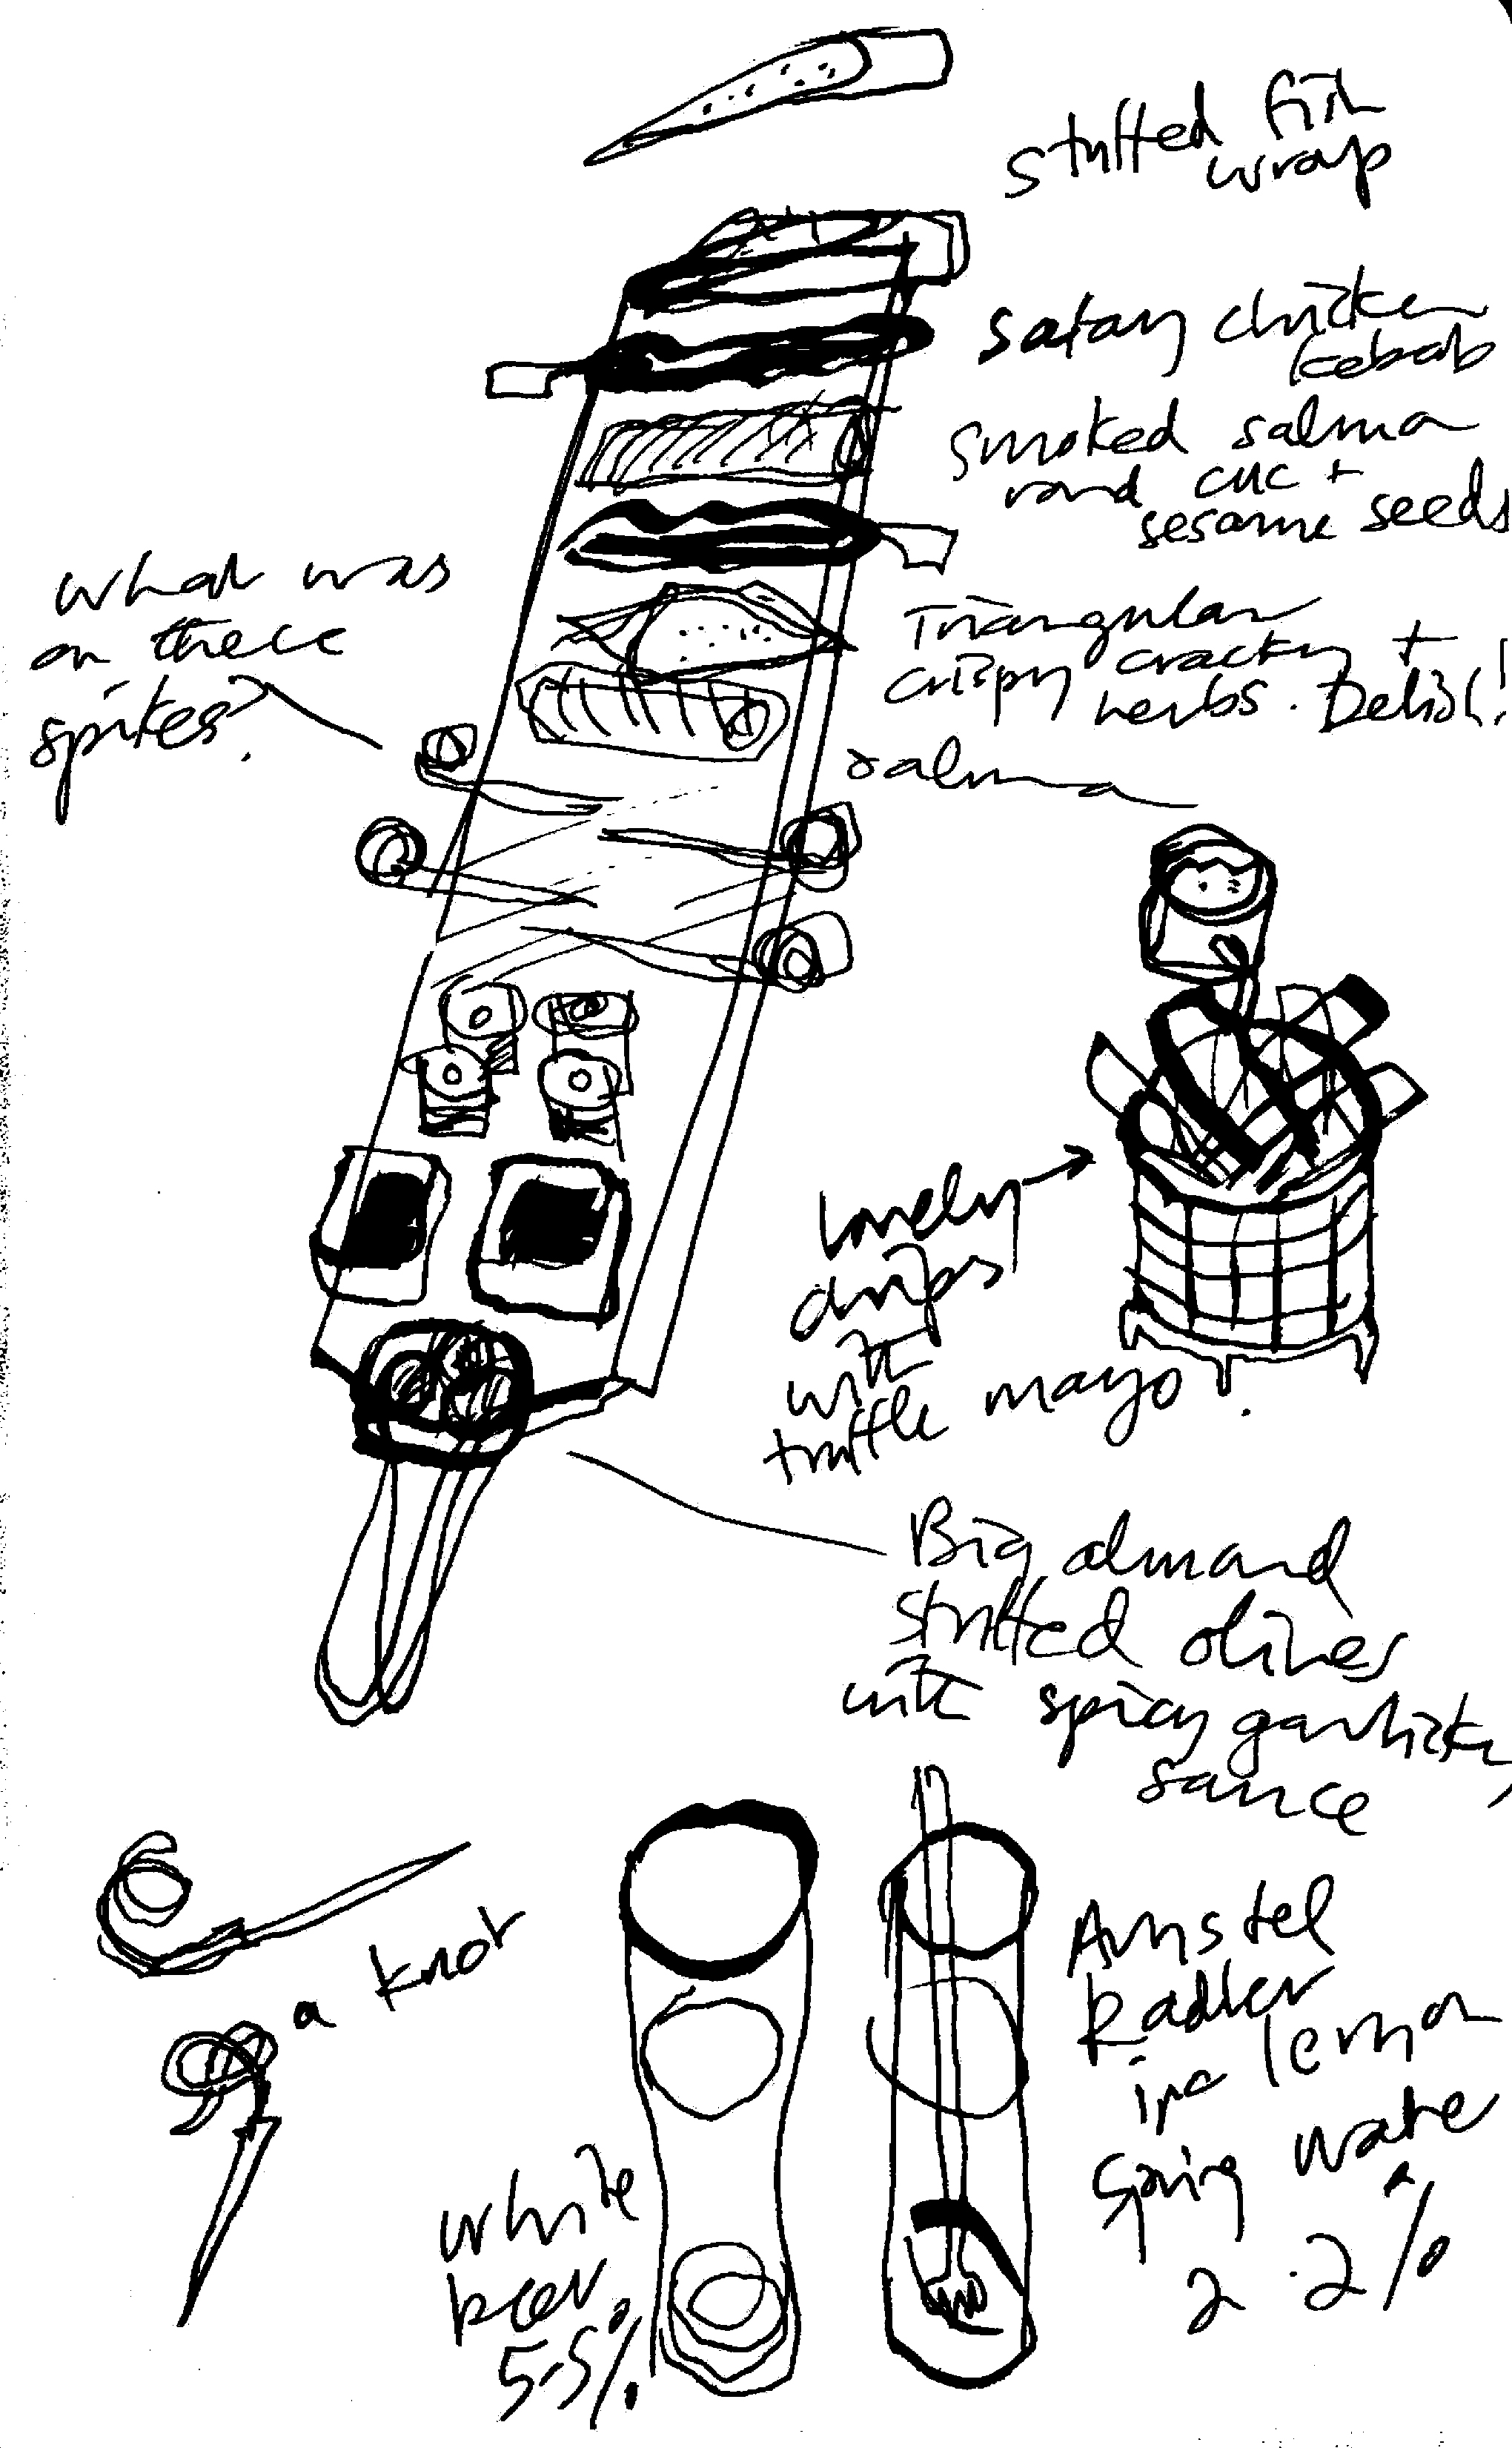 stuffed fish
wrap
satay chicken
kebab
smoked salmon
round cuc +
sesame seeds
what was
on these
spikes?
Triangular
crispy cracky +
herbs. Delish!
salmon
lovely
chips
with
truffle mayo.
Big almond
stuffed olives
with spicy garlicky
sauce
a knot
Amstel
Radler
ipa lemon
Spring water
2.2%
white
beer
5.5%